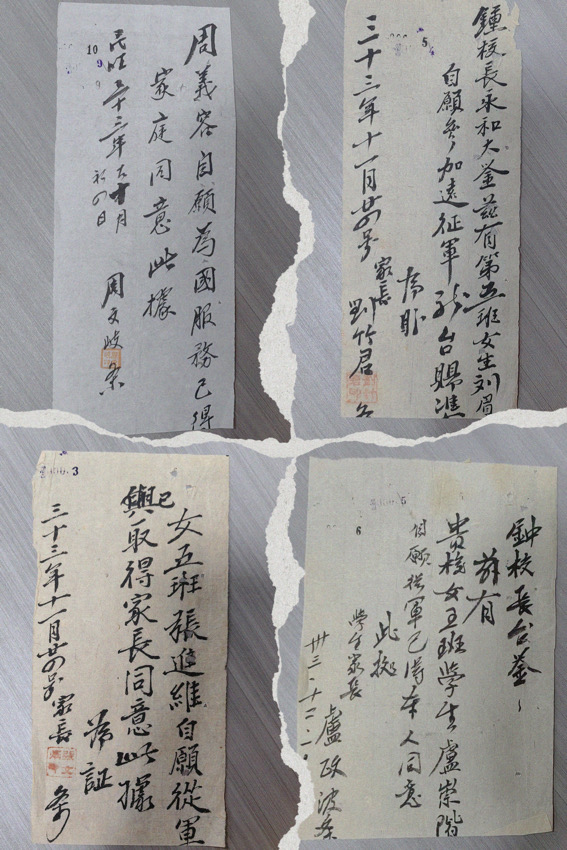 10
9
周義容自願為國服務已得
家庭同意此據
民國三十三年
月
初四日
周文岐
5
鍾校長永和大鉴兹有第五班女生刘眉
自願參加遠征軍
台賜準
為盼
家長
劉竹君
三十三年十一月廿四号
3
女五班張進維自願從軍
已
與取得家長同意此據
為証
三十三年十一月廿四号
家長
5
6
鈡校長台鉴
兹有
貴校女五班學生盧崇階
自願從軍已得本人同意
此據
學生家長
盧政波
卅三·十二·一